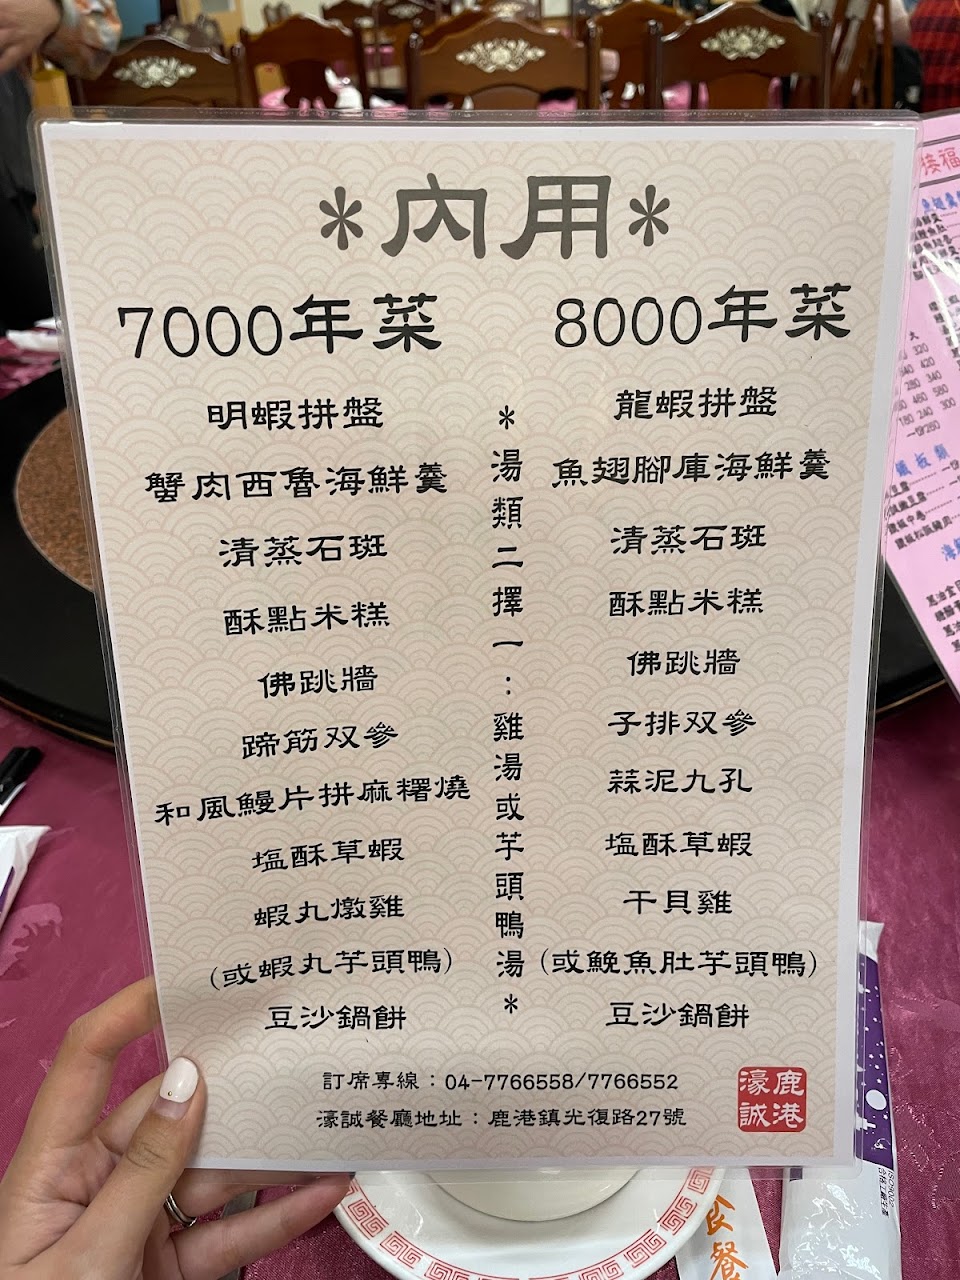 *內用*
7000年菜
明蝦拼盤
蟹肉西魯海鮮羹
清蒸石斑
酥點米糕
佛跳牆
蹄筋双參
和風鰻片拼麻糬燒
塩酥草蝦
蝦丸燉雞
(或蝦丸芋頭鴨)
豆沙鍋餅
*湯類二擇一:雞湯或芋頭鴨湯*
8000年菜
龍蝦拼盤
魚翅腳庫海鮮羹
清蒸石斑
酥點米糕
佛跳牆
子排双參
蒜泥九孔
塩酥草蝦
干貝雞
(或鮸魚肚芋頭鴨)
豆沙鍋餅
訂席專線：04-7766558/7766552
濠誠餐廳地址：鹿港鎮光復路27號
鹿港
濠誠
接福
大
320
420
280 340
460 580
180 240 300
一份260
鐵板類
食餐
ISO9002